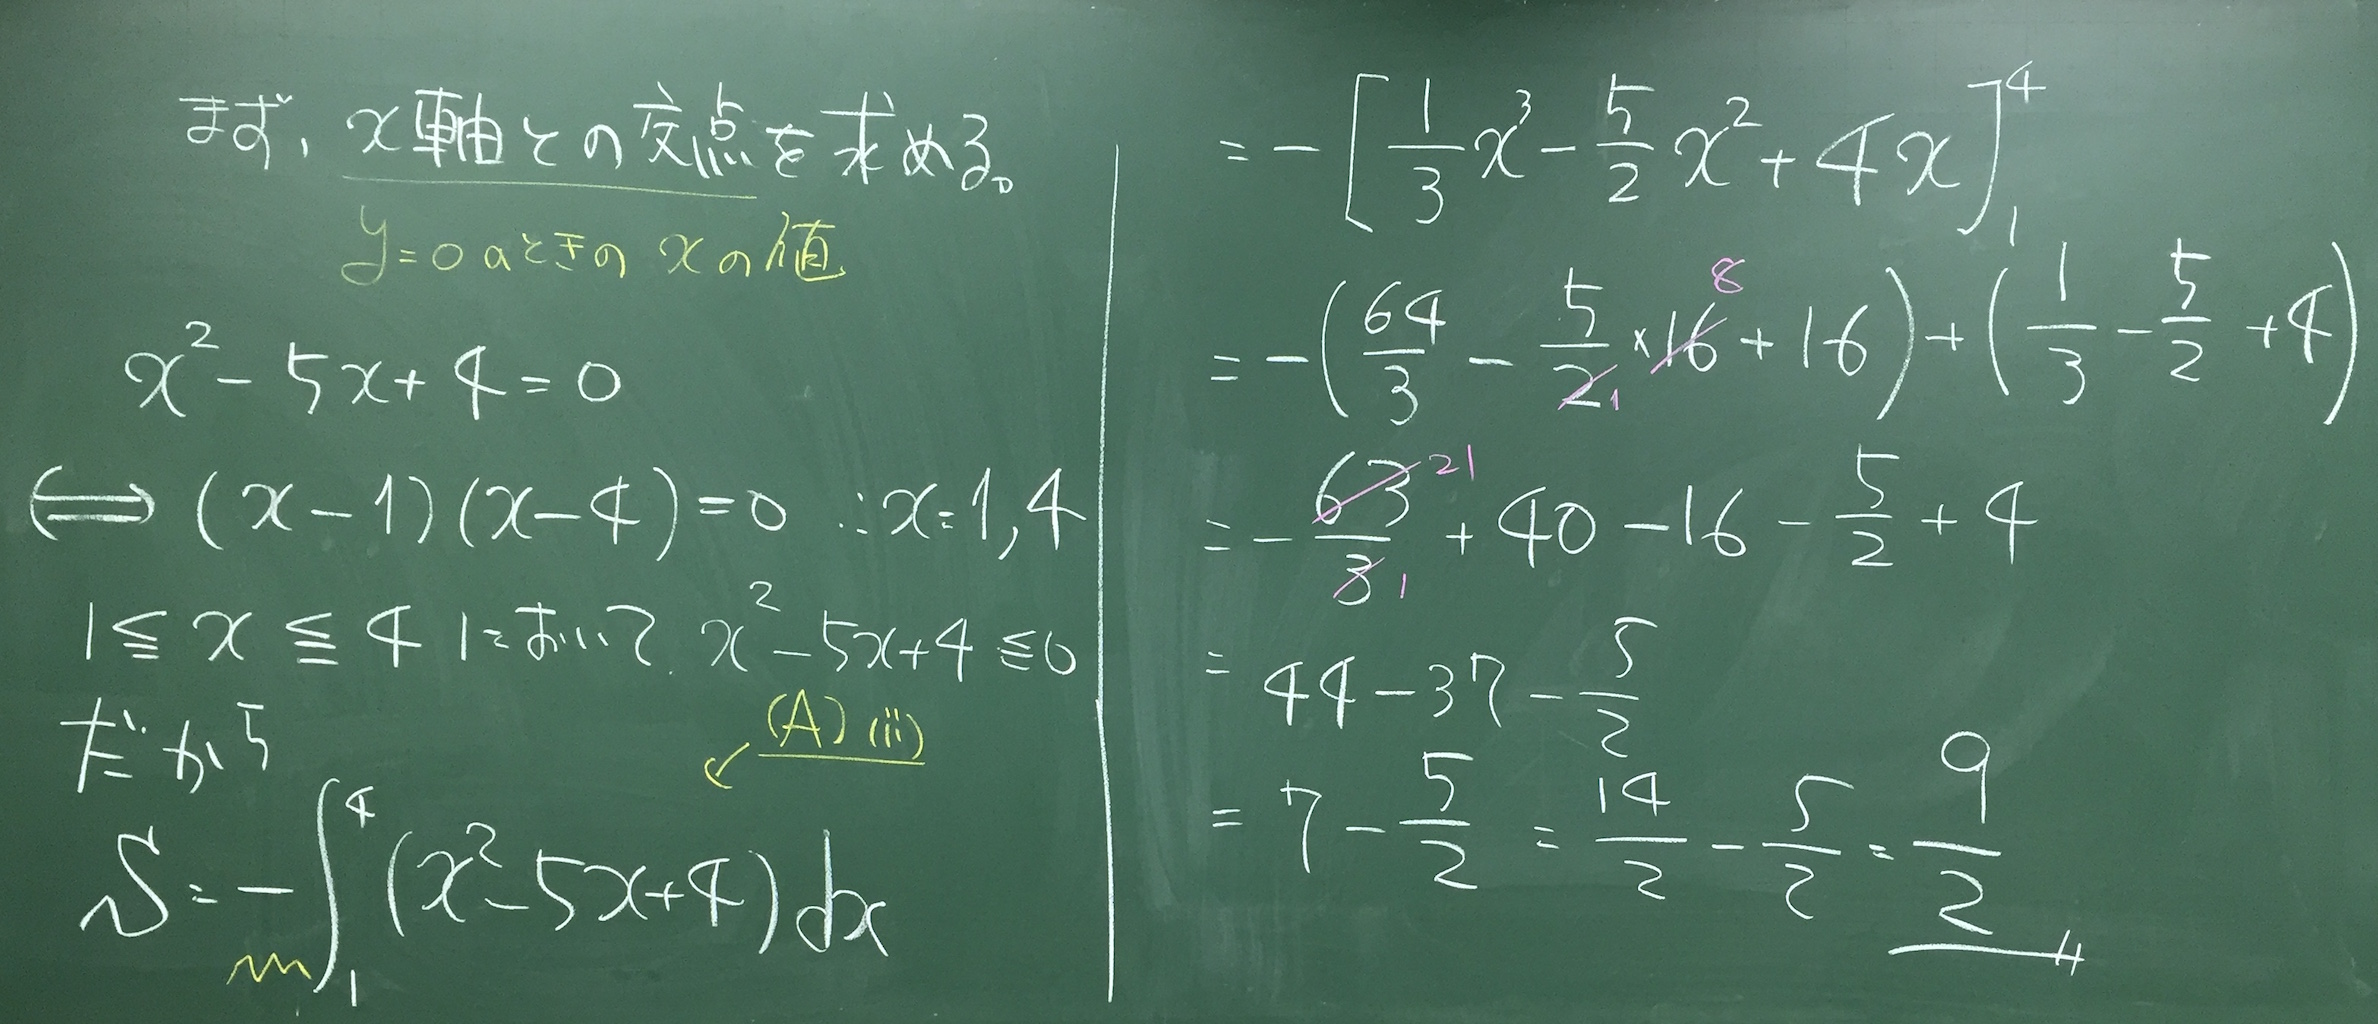 まず, x軸との交点を求める。
y=0のときのxの値
x²-5x+4=0
⟺ (x-1)(x-4)=0 ∴x=1,4
1≦x≦4において, x²-5x+4≦0
だから
(A)(ii)
↙
S=-∫₁⁴(x²-5x+4)dx
=-[1/3 x³-5/2 x²+4x]₁⁴
=-(64/3-5/2×16+16)+(1/3-5/2+4)
8
1
=-63/3+40-16-5/2+4
21
1
=44-37-5/2
=7-5/2=14/2-5/2=9/2